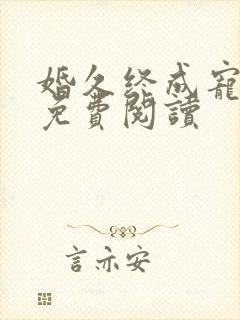 婚久终成寵
免費閱讀
言亦安